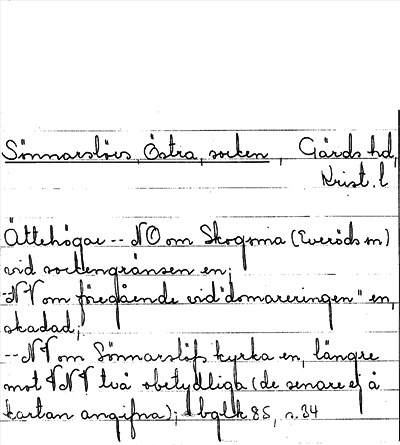 Sönnarslövs, Östra, socken, Gärds hd,
Krist. l
Ättehögar -- NO om Skogsma (Everöds sn)
vid sockengränsen en;
-- NV om föregående vid "domareringen" en,
skadad;
-- NV om Sönnarslöfs kyrka en, längre
mot VNV två obetydliga (de senare ej å
kartan angifna); bglk 85, s. 34